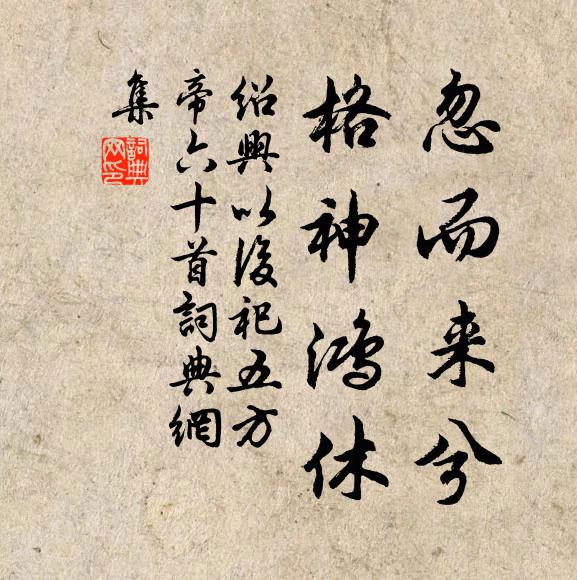 忽而来兮
格神鴻休
紹興以後祀五方
帝六十首詞典網
集
詞典
网印